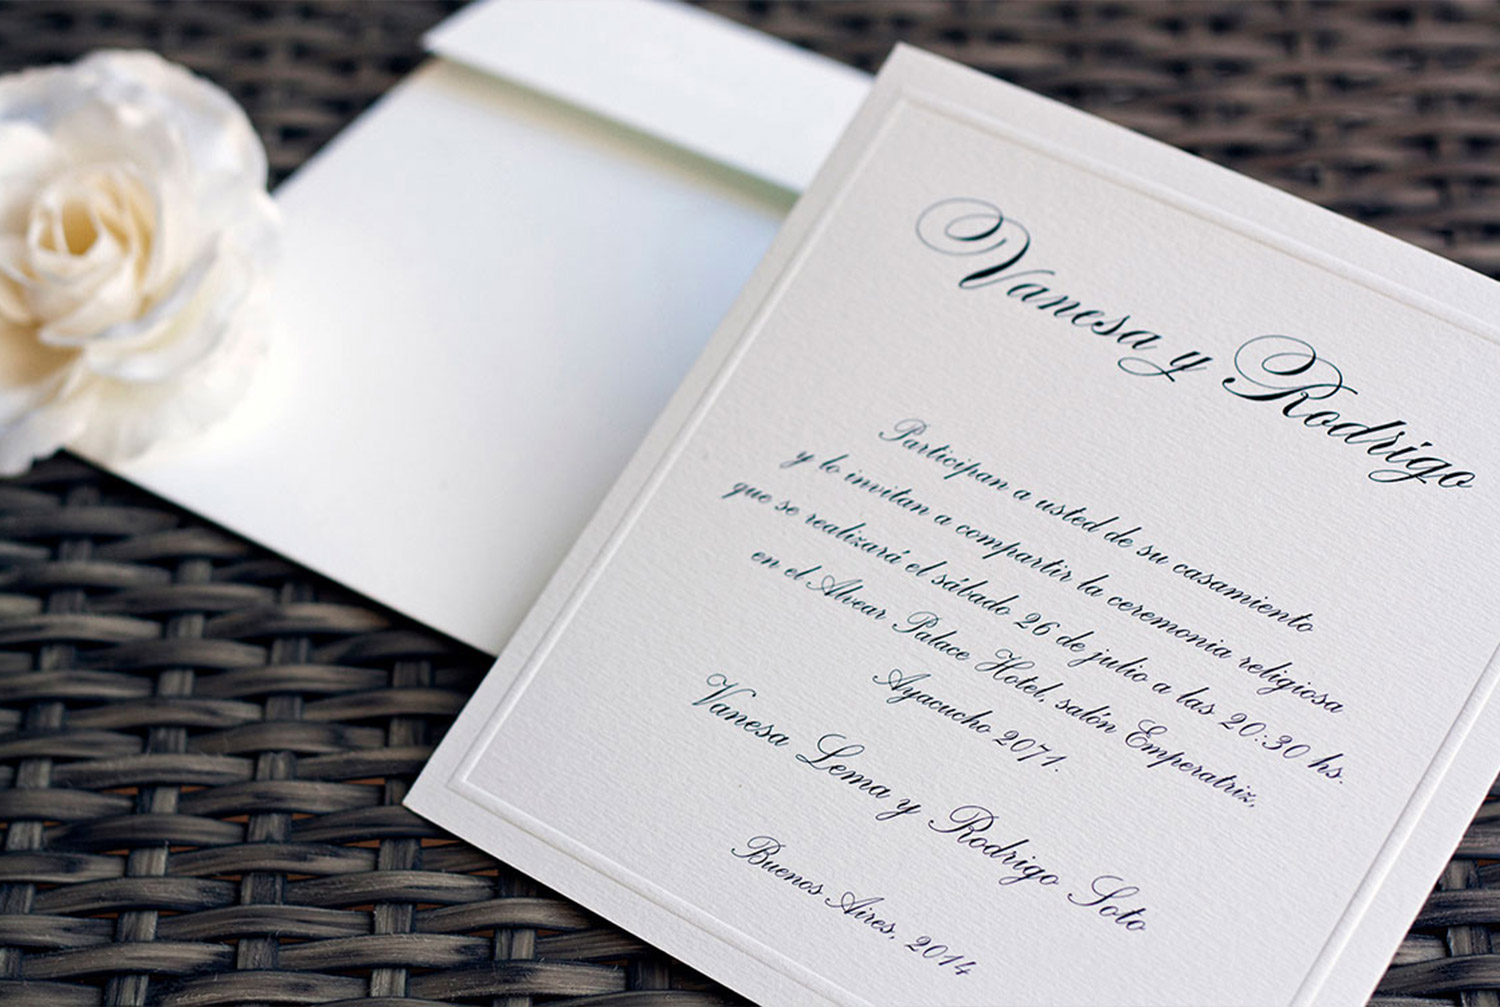 Vanesa y Rodrigo
Participan a usted de su casamiento
y lo invitan a compartir la ceremonia religiosa
que se realizará el sábado 26 de julio a las 20:30 hs.
en el Alvear Palace Hotel, salón Emperatriz,
Ayacucho 2071.
Vanesa Lema y Rodrigo Soto
Buenos Aires, 2014